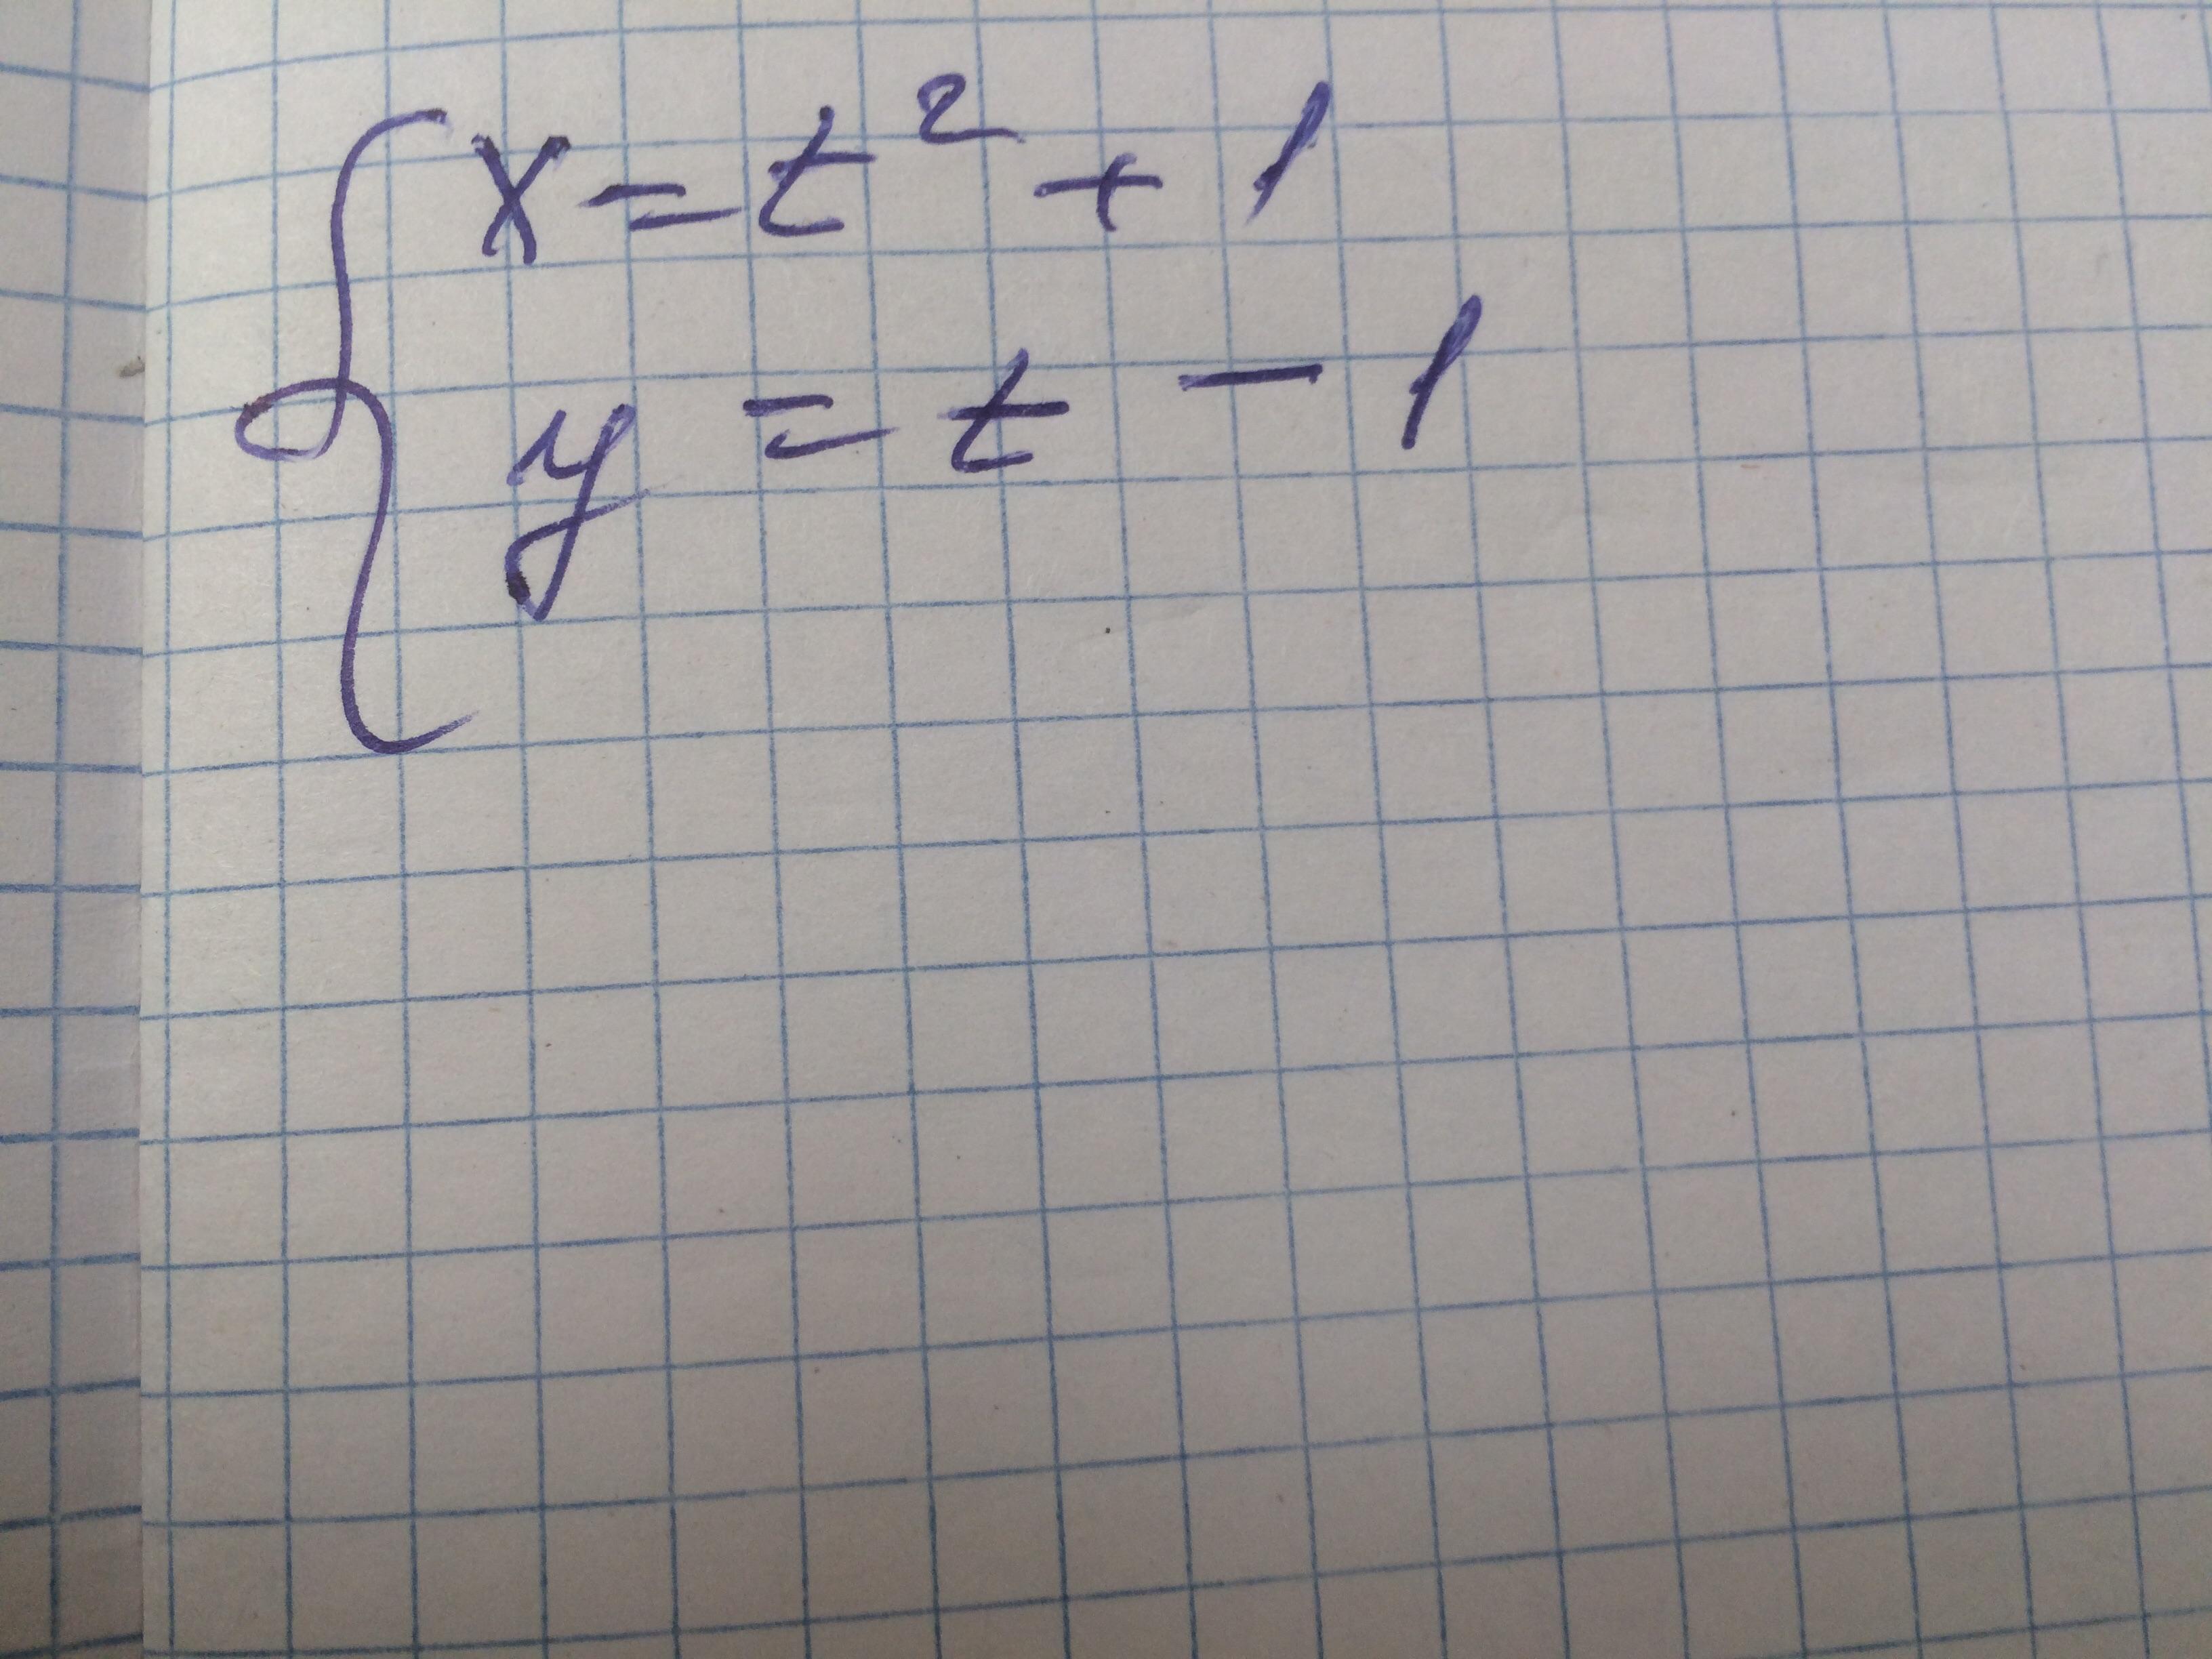 x = t² + 1
y = t - 1